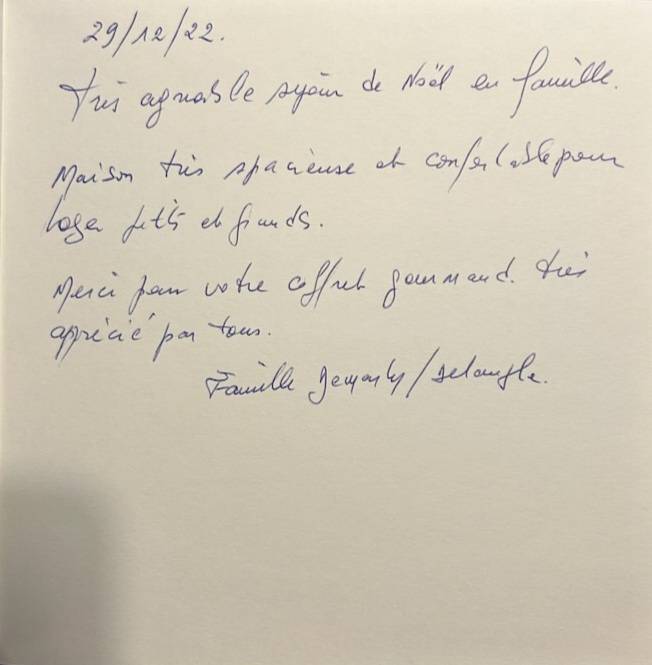 29/12/22.
Très agréable séjour de Noël en famille.
Maison très spacieuse et confortable pour
loger petits et grands.
Merci pour votre coffret gourmand. très
apprécié par tous.
Famille / Delangle.